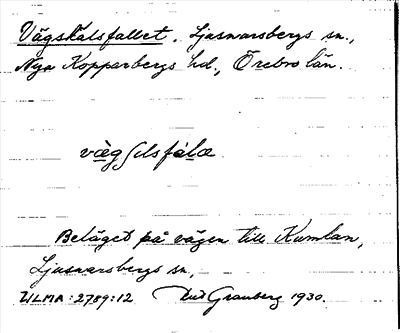 Vägskälsfallet. Ljusnarsbergs sn.,
Nya Kopparbergs hd., Örebro län.
Beläget på vägen till Kumlan,
Ljusnarsbergs sn,
ULMA:2789:12 Granberg 1930.